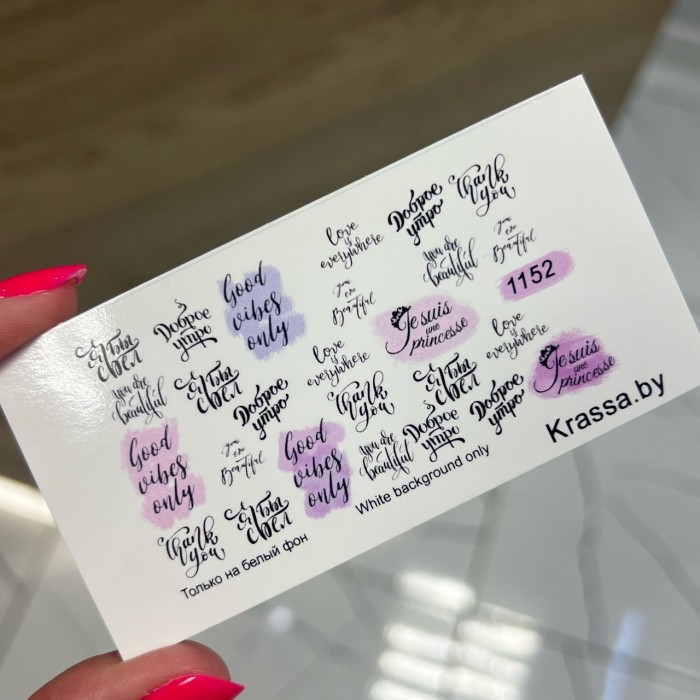 Thank
you
Доброе
утро
love
is
everywhere
you
are
Beautiful
you are
beautiful
1152
Good
vibes
only
you
are
Beautiful
Je suis
une
princesse
love
is
everywhere
Доброе
утро
Я бы
съел
love
is
everywhere
Je suis
une
princesse
you are
beautiful
Я бы
съел
Доброе
утро
Thank
you
Я бы
съел
Доброе
утро
Доброе
утро
Good
vibes
only
you
are
Beautiful
Good
vibes
only
you are
beautiful
Thank
you
Я бы
съел
Krassa.by
White background only
Только на белый фон